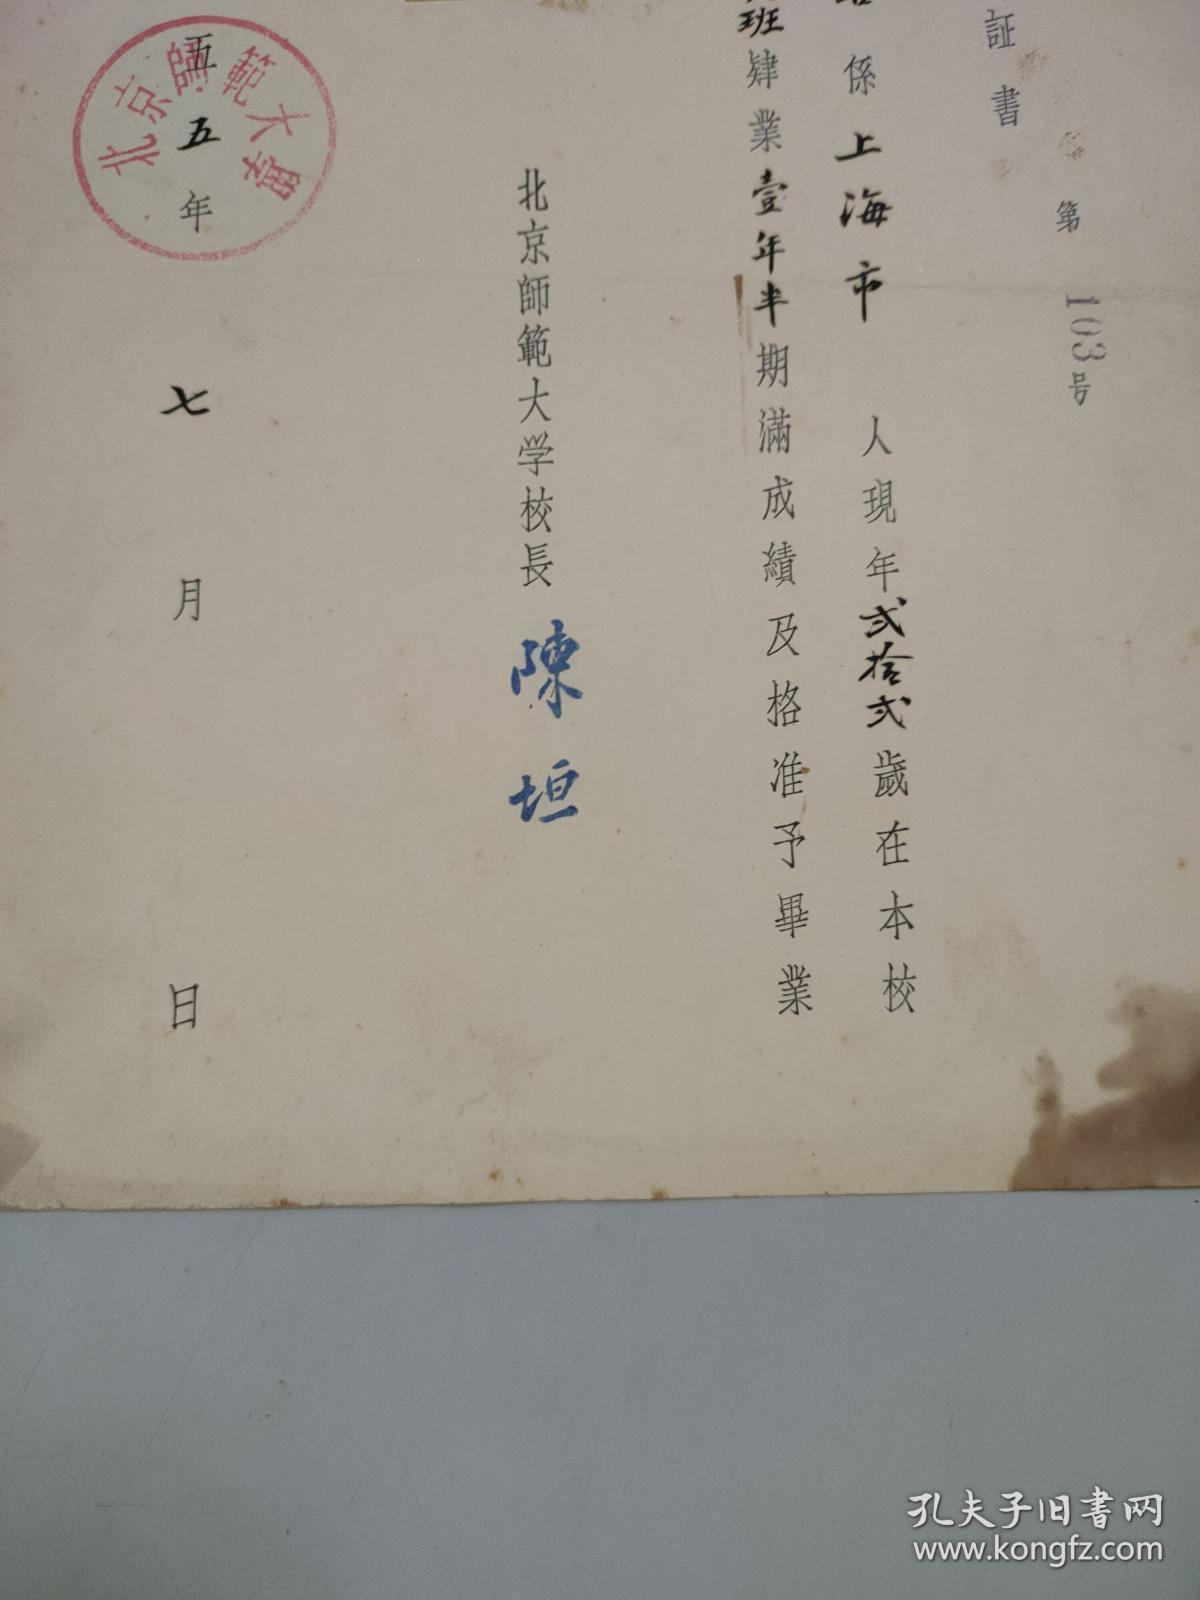 証書
第103号
係上海市人現年弍拾弍歲在本校
班肄業壹年半期滿成績及格准予畢業
北京師範大学校長陳垣
五五年七月日
北京師範大學
孔夫子旧书网
www.kongfz.com